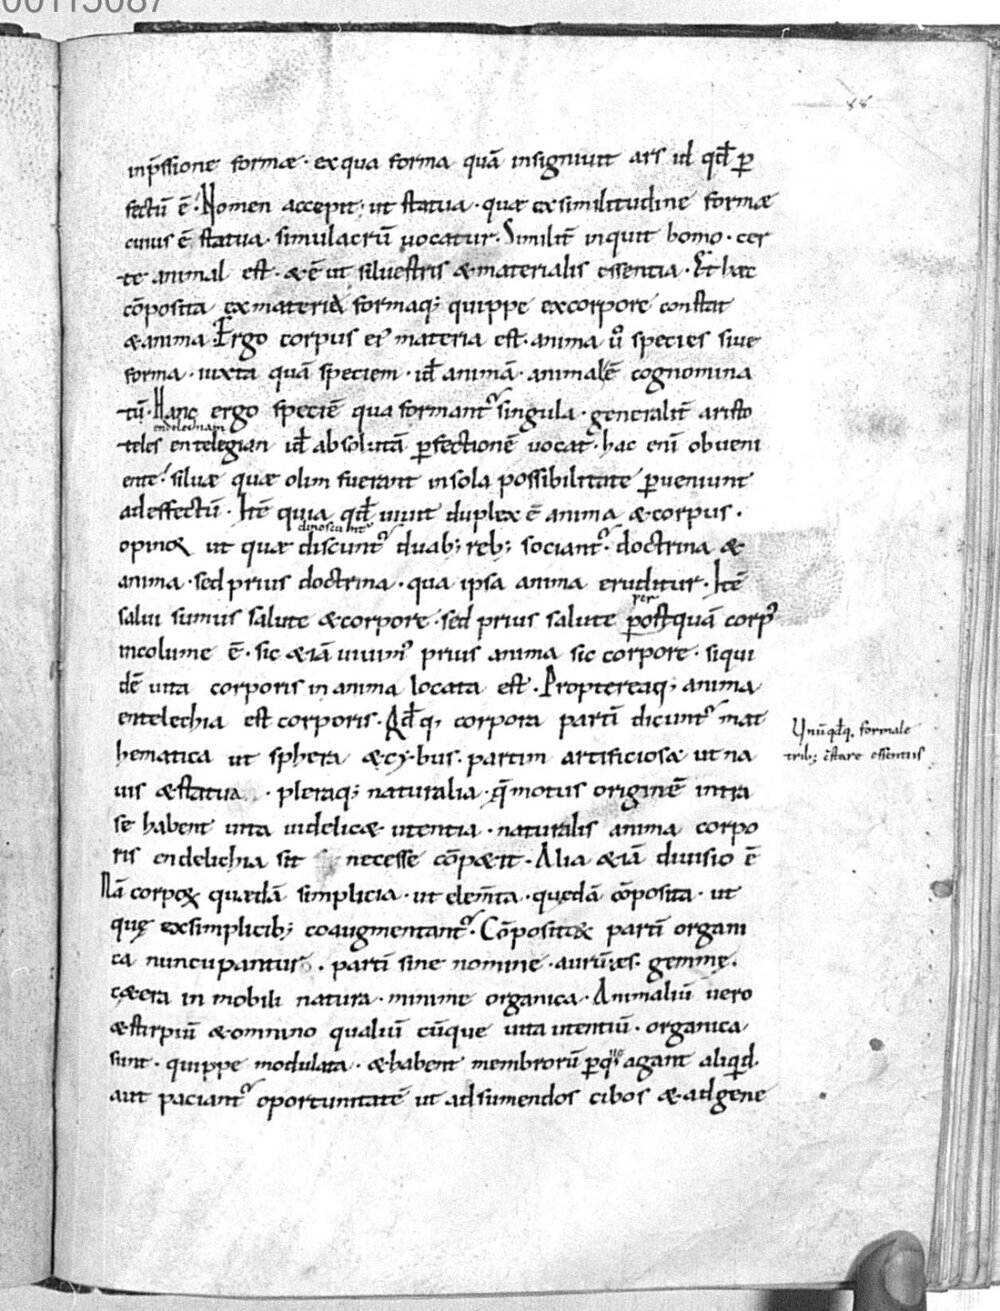 00115087
88
inp̄ssione formæ · ex qua forma quā insigniuit ars id qđ ꝑ
fectū ē · Nomen accepit; ut statua · quæ ex similitudine formæ
cuius ē statua · simulacrū uocatur · Similit̄ inquit homo · cer
te animal est · & ē ut siluestris & materialis essentia · Et hæc
cōposita ex materia formaq; quippe ex corpore constat
& anima · Ergo corpus ei᾽ materia est · anima ů species siue
forma · iuxta quā speciem · id̄ animā · animal ē cognomina
tū · Hanc ergo speciē qua formant᾽ singula · generalit̄ aristo
endelechiam
teles entelegian id̄ absolutā ꝑfectionē uocat · hac eni obueni
ente · siluæ quæ olim fuerant in sola possibilitate ꝑueniunt
ad effectū · Itē quia qđ uiuit duplex ē anima & corpus ·
dinoscunt᾽
opinoꝝ ut quæ discunt᾽ duab; reb; sociant᾽ · doctrina &
anima · sed prius doctrina · qua ipsa anima eruditur · Itē
per
salui sumus salute & corpore · sed prius salute postquā corp᾽
incolume ē · sic & iā uiuim᾽ prius anima sic corpore · siqui
dē uita corporis in anima locata est · Proptereaq; anima
entelechia est corporis · Ad̄q; corpora parti dicunt᾽ mat
hematica ut sphera & cybus · partim artificiosa ut na
uis & statua · pleraq; naturalia · q̄ motus originē intra
se habent uita uidelicæ utentia · naturalis anima corpo
ris endelichia sit necesse cōpæit · Alia & iā diuisio ē
Nā corpoꝝ quædā simplicia · ut elem̄ta · quędā cōposita · ut
quę ex simplicib; coaugmentant᾽ · Cōpositaꝝ parti organi
ca nuncupantur · parti sine nomine · aurū · æs · gemmę ·
cætera in mobili natura · minime organica · Animaliū uero
& stirpiū & omnino qualiū cūque uita utentiū · organica
sunt · quippe modulata · & habent membrorū ꝑ q᷒ agant aliqid
aut paciant᾽ oportunitatē ut ad sumendos cibos & ad gene
Unūqđq, formale
trib; c̄stare essentiis